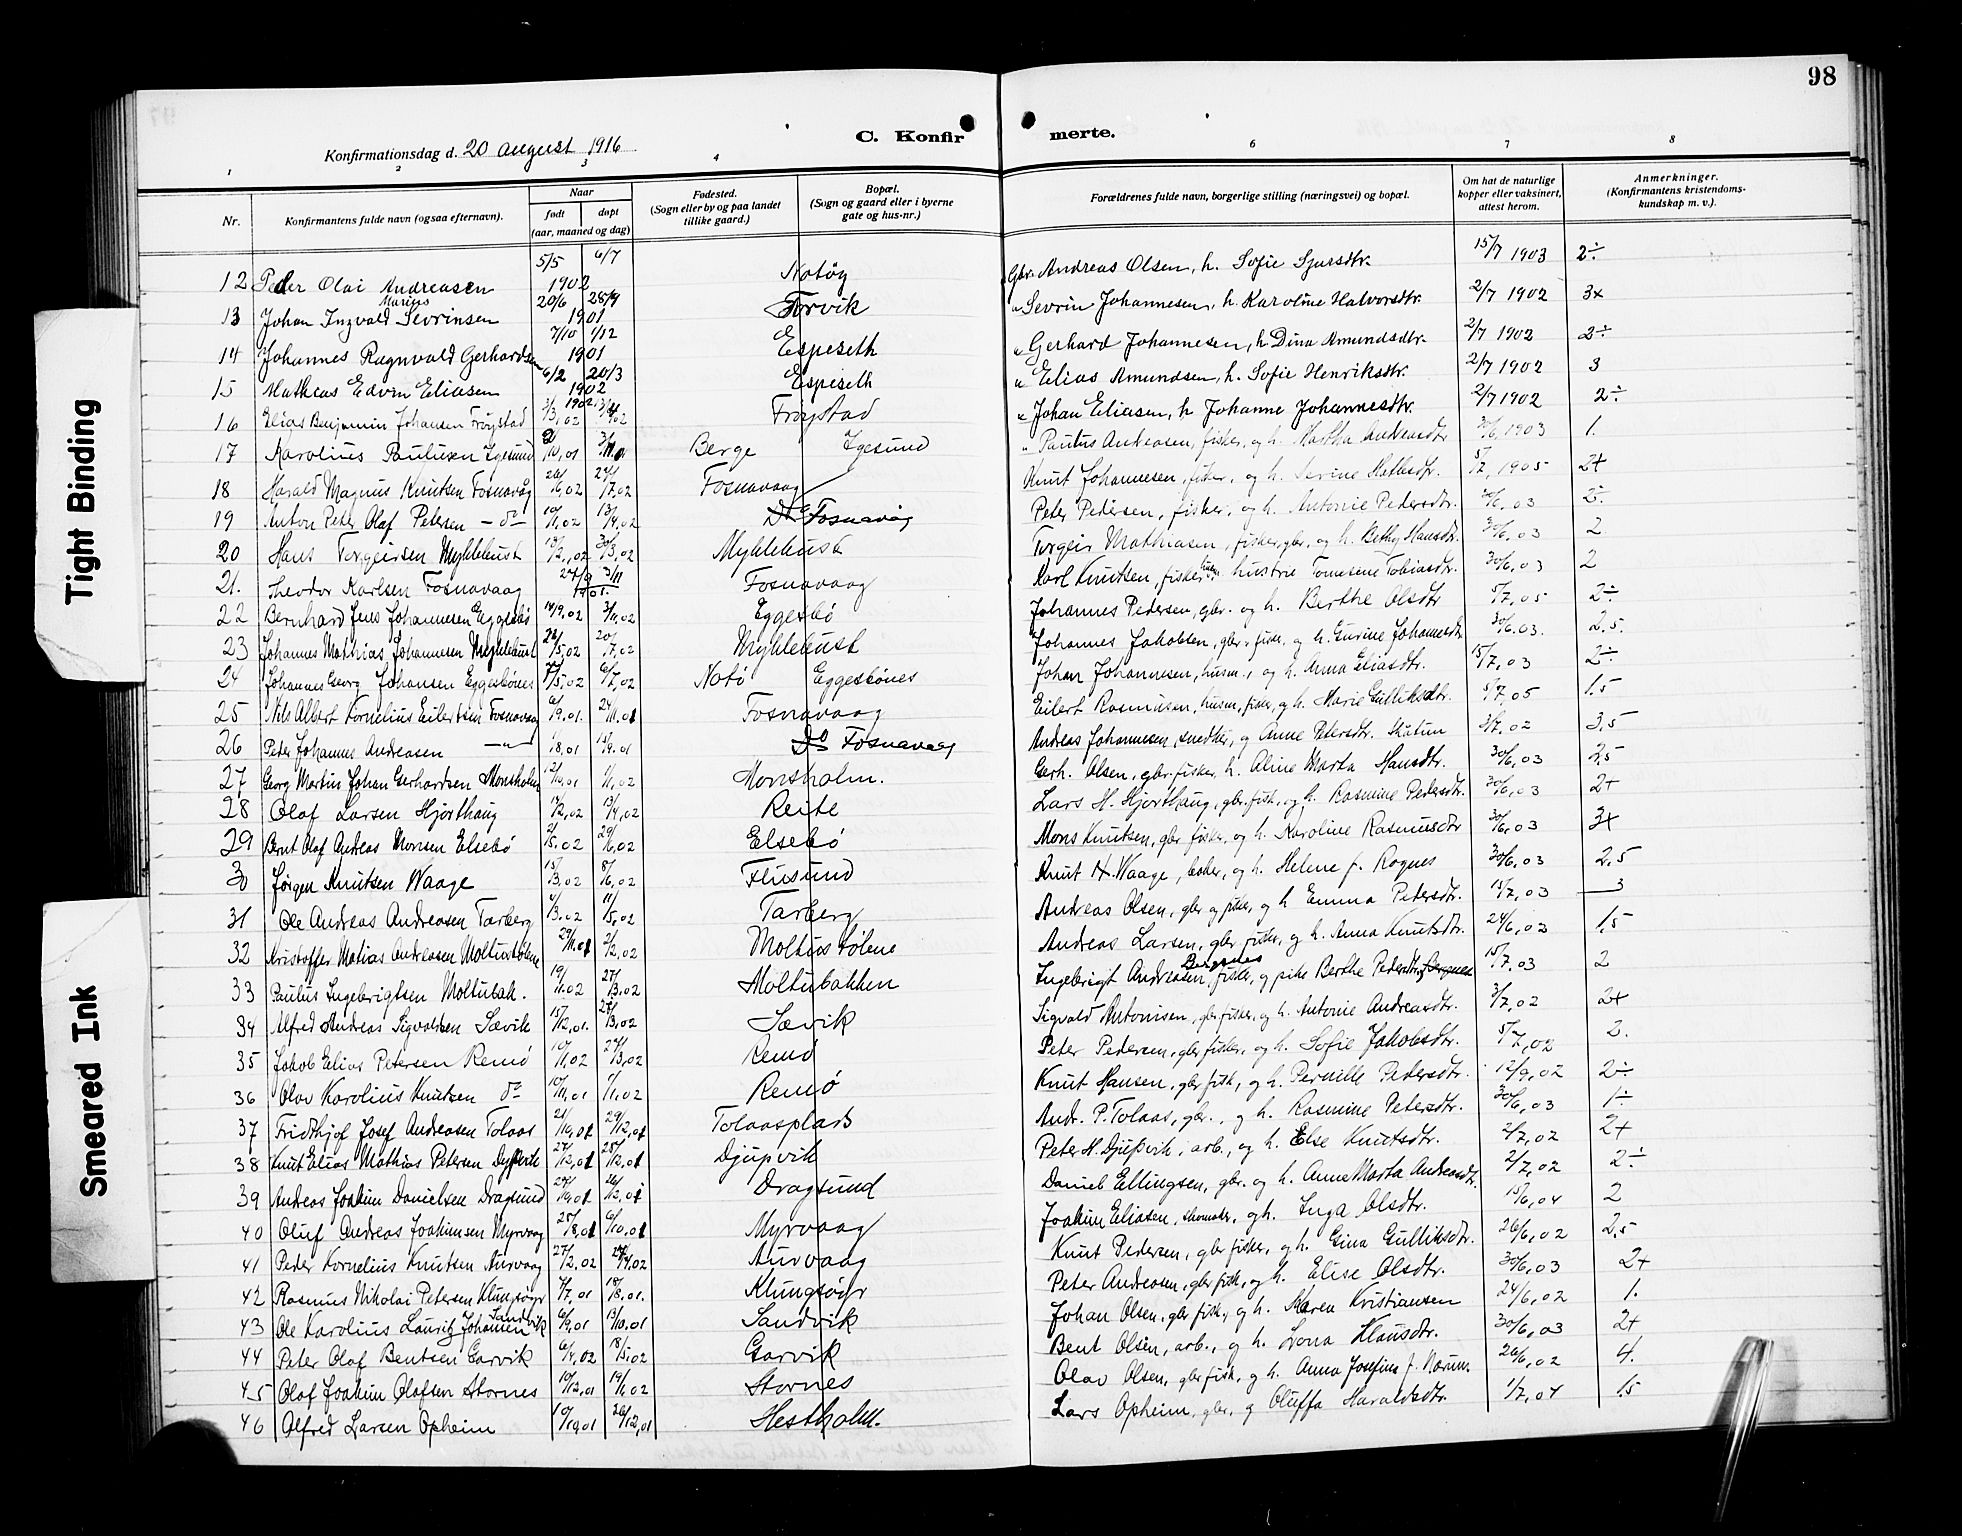 98
C. Konfir merte.
Konfirmationsdag d. 20 august 1916
1 2 3 4 6 7 8
Nr. Konfirmantens fulde navn (ogsaa efternavn). Naar født døpt (aar, maaned og dag) Fødested. (Sogn eller by og paa landet tillike gaard.) Bopæl. (Sogn og gaard eller i byerne gate og hus-nr.) Forældrenes fulde navn, borgerlige stilling (næringsvei) og bopæl. Om hat de naturlige kopper eller vaksinert, attest herom. Anmerkninger. (Konfirmantens kristendoms-kundskap m. v.).
12 Peder Olai Andreasen 5/5 6/7 1902 Notøy Gbr. Andreas Olsen, h. Sofie Sjursdtr. 15/7 1903 2÷
13 Johan Ingvald Marius Sevrinsen 20/6 28/9 1901 Torvik " Sevrin Johannesen, h. Karoline Halvorsdtr. 2/7 1902 3x
14 Johannes Ragnvald Gerhardsen 7/10 1/12 1901 Espeseth " Gerhard Johannesen, h Dina Amundsdtr. 2/7 1902 2÷
15 Mathias Edvin Eliasen 6/2 20/3 1902 Espeseth " Elias Amundsen, h. Sofie Henriksdtr. 2/7 1902 3
16 Elias Benjamin Johansen Frøystad Frøystad " Johan Eliasen, h Johanne Johannesdtr. 2/7 1902 2÷
17 Karolius Paulusen Igesund Berge Igesund " Paulus Andreasen, fisker, og h. Martha Andreasdtr 30/6, 1903 1.
18 Harald Magnus Knutsen Fosnavåg 26/6, 02 27/7, 02 Fosnavaag Knut Johannesen, fisker, og h. 5/7, 1905 2+
19 Anton Peter Olaf Petersen — do 10/1, 02 13/4, 02 Do Fosnavåg Peter Pedersen, fisker, og h. Antonie Pedersdtr. 30/6, 03 2÷
20 Hans Torgeirsen Myklebust 13/2, 02 30/3, 02 Myklebust Torgeir Mathiasen, fisker, gbr., og h. Bethy Hansdtr. 30/6, 03 2
21. Theodor Karlsen Fosnavaag 27/9 3/11 1901. Fosnavaag Karl Knutsen, fisker, husm. hustru Tomesine Tobiasdtr. 30/6, 03 2
22 Bernhard Jens Johannesen Eggesbø Eggesbø Johannes Pedersen, gbr. og h. Berthe Olsdtr 5/7, 05 2÷
23 Johannes Mathias Johannesen Myklebust 20/7, 02 Myklebust Johannes Jakobsen, gbr. fisk. og h. Gurine Johannesdtr 30/6. 03. 2.5.
24 Johannes Georg Johansen Eggesbønes 6/7, 02 Notø Eggesbønes Johan Johannesen, husm., og h. Anna Eliasdtr. 15/7, 03 2÷
25 Nils Albert Kornelius Eilertsen Fosnavaag 6/9. 01. 24/11. 01 Fosnavaag Eilert Rasmusen, husm, fisker, og h. Marie Gulliksdtr. 5/7, 05 1.5
26 Peter Johannes Andreasen — " — 1/8, 01 15/9. 01 Do Fosnavaag Andreas Johannesen, snedker, og Anne Petersdtr. 2/7. 02 3,5
27 Georg Martin Johan Gerhardsen Monsholm 12/10, 01 1/1, 02 Monsholm. Gerh. Olsen, gbr. fisker, h. Aline Marta Hansdtr. 30/6, 03 2,5
28 Olaf Larsen Hjørthaug 14/2, 02 13/4, 02 Reite Lars H. Hjørthaug, gbr. fisk., og h. Rasmine Pedersdtr. 30/6, 03 2+
29 Bernt Olaf Andreas Monsen Elsebø 2/5. 02 29/6, 02 Elsebø Mons Knutsen, gbr fisker, og h. Karoline Rasmusdtr 30/6, 03 3+
30 Jørgen Knutsen Waage 15/3, 02 8/6, 02 Flusund Knut H. Waage, og h. Helene f. Rognes 30/6, 03 2,5
31 Ole Andreas Andreasen Tarberg 4/3. 02 11/5, 02 Tarberg Andreas Olsen, gbr og fisker, og h Emma Petersdtr. 15/7, 03 3
32 Kristoffer Matias Andreasen Moltustølene 29/11. 01 2/2, 02 Moltustølene Andreas Larsen, gbr fisker, og h. Anna Knutsdtr. 24/6, 03 1,5
33 Paulus Ingebrigtsen Moltubak. 19/1. 02 27/3, 02 Moltubakken Ingebrigt Andreasen Bergsnes fisker, og pike Berthe Pedersdtr. 15/7, 03 2
34 Alfred Andreas Sigvaldsen Sævik 15/12, 01. 23/3, 02 Sævik Sigvald Antonisen, gbr. fisker, og h. Antonie Andreasdtr. 3/7, 02 2+
35 Jakob Elias Petersen Remø 10/1, 02 27/3, 02 Remø Peter Pedersen, gbr, fisker, og h. Sofie Jakobsdtr. 5/7, 02 2.
36 Olav Karolius Knutsen do 10/11, 01 1/1, 02 Remø Knut Hansen, gbr fisk, og h. Pernille Pedersdtr. 12/9, 02 2÷
37 Fridthjof Josef Andreasen Tolaas 21/10, 01 29/12, 01 Tolaasplads Andr. P. Tolaas, gbr., og h. Rasmine Petersdtr. 30/6, 03 1÷
38 Knut Elias Mathias Petersen Djupvik Djupvik Peter H. Djupvik, arb., og h. Else Knutsdtr. 2/7, 02 2+
39 Andreas Joakim Danielsen Dragsund Dragsund Daniel Ellingsen, gbr. og h. Anne Marta Andreasdtr. 2/7, 02 2÷
40 Oluf Andreas Joakimsen Myrvaag 25/8, 01 6/10, 01 Myrvaag Joakim Eliasen, skomaker, og h. Inga Olsdtr. 15/6, 04 2
41 Peder Kornelius Knutsen Aurvaag 27/2, 02 27/4, 02 Aurvaag Knut Pedersen, gbr fisker, og h. Gina Gulliksdtr. 26/6, 02 2,5
42 Rasmus Nikolai Petersen Klungsøyr 7/7, 01 18/8, 01. Klungsøyr Peter Andreasen, gbr fisk, og h. Elise Olsdtr. 30/6, 03 2+
43 Ole Karolius Lauritz Johansen Sandvik 6/9, 01 13/10, 01 Sandvik Johan Olsen, gbr fisk., og h. Maren Kristiansen 24/6, 02 1.
44 Peter Olaf Bentsen Garvik 6/4, 02 18/5, 02 Garvik Bent Olsen, arb., og h. Lona Klausdtr. 30/6, 03 2+
45 Olaf Joakim Olafsen Stornes 10/12, 01 19/1, 02 Stornes Olav Olsen, gbr fisk, og h. Anna Josefine f. Nørum. 26/6, 02 4.
46 Alfred Larsen Opheim 10/10, 01 26/12, 01 Hestholm. Lars Opheim, gbr, og Oluffa Haraldsdtr. 1/7, 04 1.5
Tight Binding
Smeared Ink